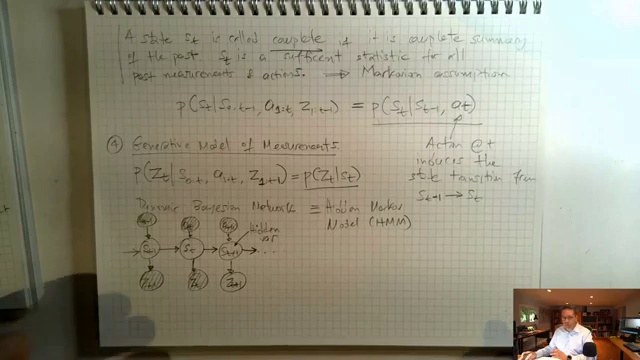 A state St is called complete if it is complete summary
of the past. St is a sufficient statistic for all
past measurements & actions. ⟹ Markovian assumption
p(St | S0:t-1, a1:t, Z1:t-1) = p(St | St-1, at)
Action @ t
induces the
state transition from
St-1 → St
④ Generative Model of Measurements.
p(Zt | S0:t, a1:t, Z1:t-1) = p(Zt | St)
Dynamic Bayesian Network ≡ Hidden Markov
Model (HMM)
Hidden
var
St-1 St St+1 ...
Zt-1 Zt Zt+1